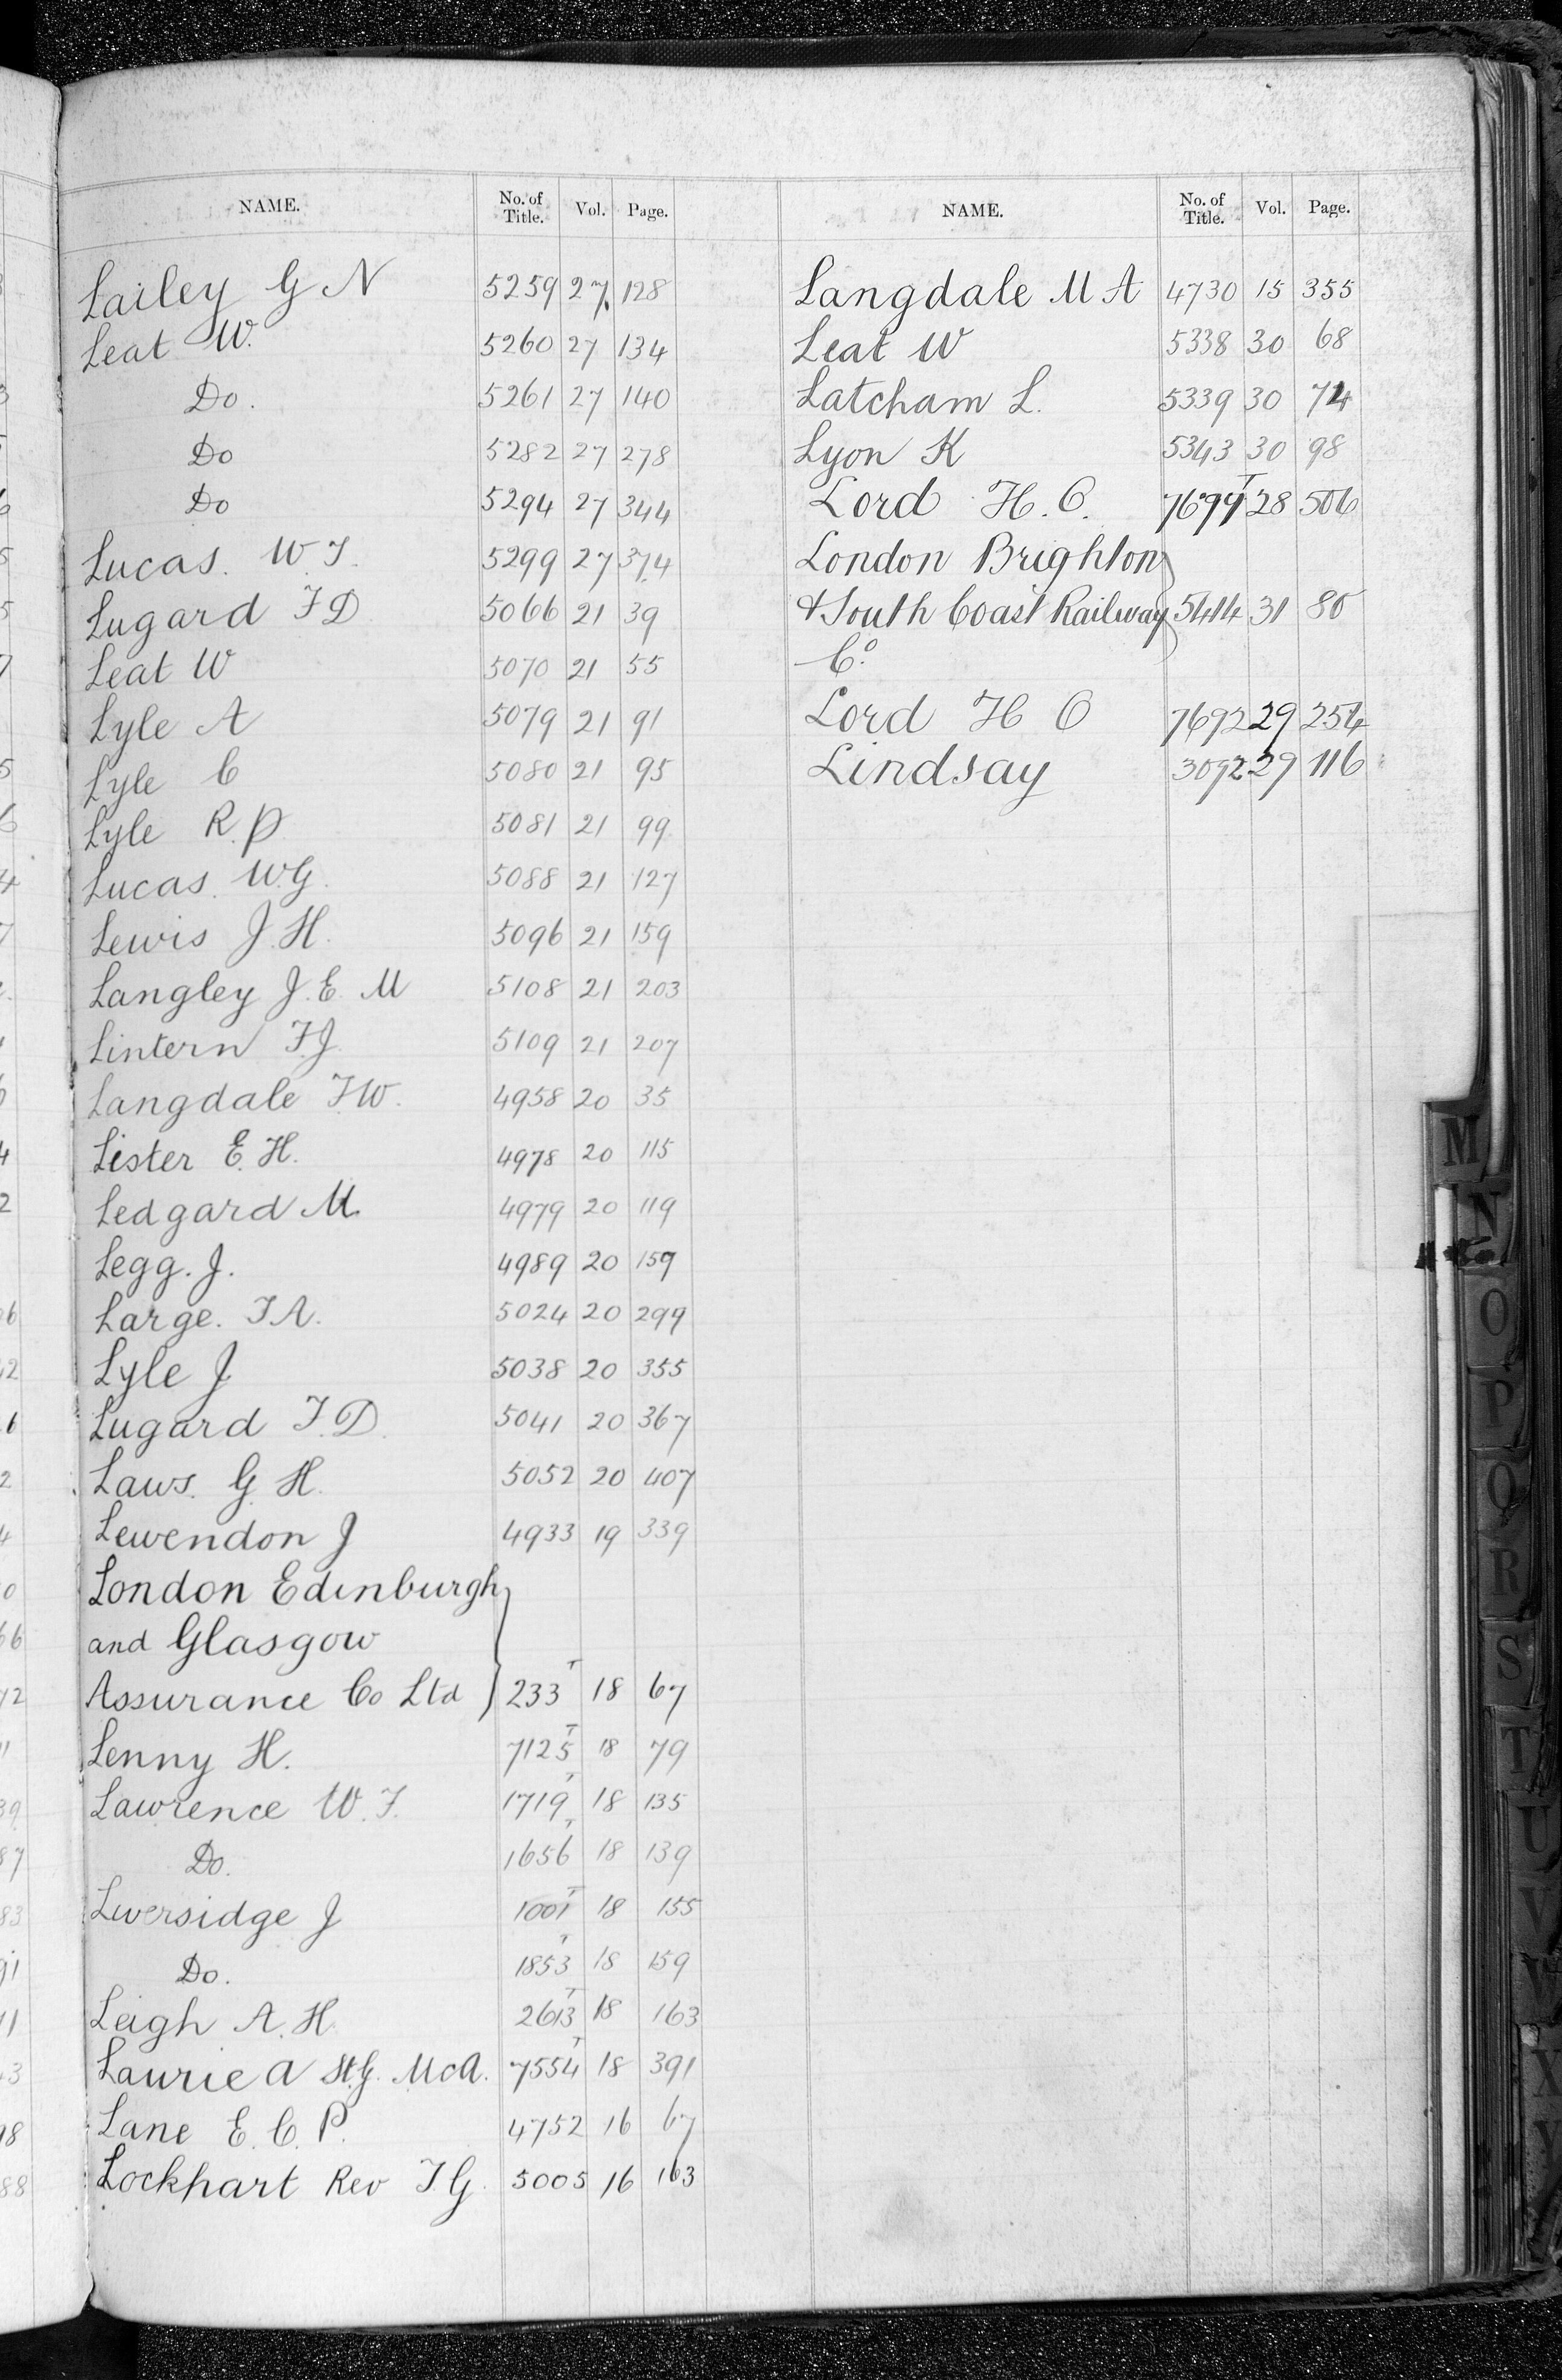 NAME. No. of Title. Vol. Page.
Lailey G N 5259 27 128
Leat W. 5260 27 134
Do. 5261 27 140
Do 5282 27 278
Do 5294 27 344
Lucas. W F. 5299 27 374
Lugard F D 5066 21 39
Leat W 5070 21 55
Lyle A 5079 21 91
Lyle C 5080 21 95
Lyle R. P 5081 21 99
Lucas. W.G. 5088 21 127
Lewis J. H. 5096 21 159
Langley J. E. M 5108 21 203
Lintern F.J. 5109 21 207
Langdale F.W. 4958 20 35
Lister E. H. 4978 20 115
Ledgard M. 4979 20 119
Legg. J. 4989 20 159
Large. F A. 5024 20 299
Lyle J 5038 20 355
Lugard F. D. 5041 20 367
Laws. G. H. 5052 20 407
Lewendon J 4933 19 339
London Edinburgh
and Glasgow
Assurance Co Ltd 233 T 18 67
Lenny H. 7125 T 18 79
Lawrence W. F. 1719 T 18 135
Do. 1656 T 18 139
Liversidge J 1001 T 18 155
Do. 1853 T 18 159
Leigh A. H. 2613 T 18 163
Laurie A St.G. McA. 7554 T 18 391
Lane E. C. P. 4752 16 67
Lockhart Rev F. G. 5005 16 163
NAME. No. of Title. Vol. Page.
Langdale M A 4730 15 355
Leat W 5338 30 68
Latcham L. 5339 30 74
Lyon K 5343 30 98
Lord H. C. T 28 506
London Brighton
& South Coast Railway 5414 31 80
Co.
Lord H C 7692 29 254
Lindsay 3092 29 116
M
N
O
P
Q
R
S
T
U
V
W
X
Y